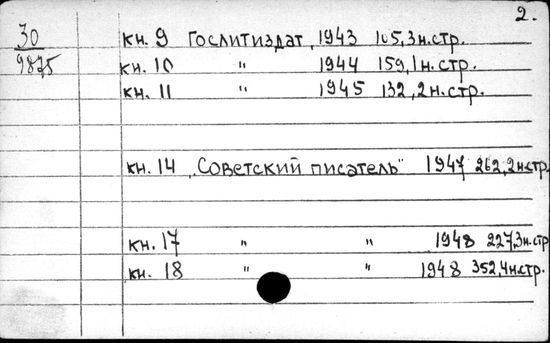 2.
30
9875
кн. 9 Гослитиздат, 1943 105, 3 н. стр.
кн. 10 " 1944 159, 1 н. стр.
кн. 11 " 1945 132, 2 н. стр.
кн. 14 „Советский писатель" 1947 262, 2 н стр.
кн. 17 " " 1948 227, 3 н. стр
кн. 18 " " 1948 352, 4 н. стр.